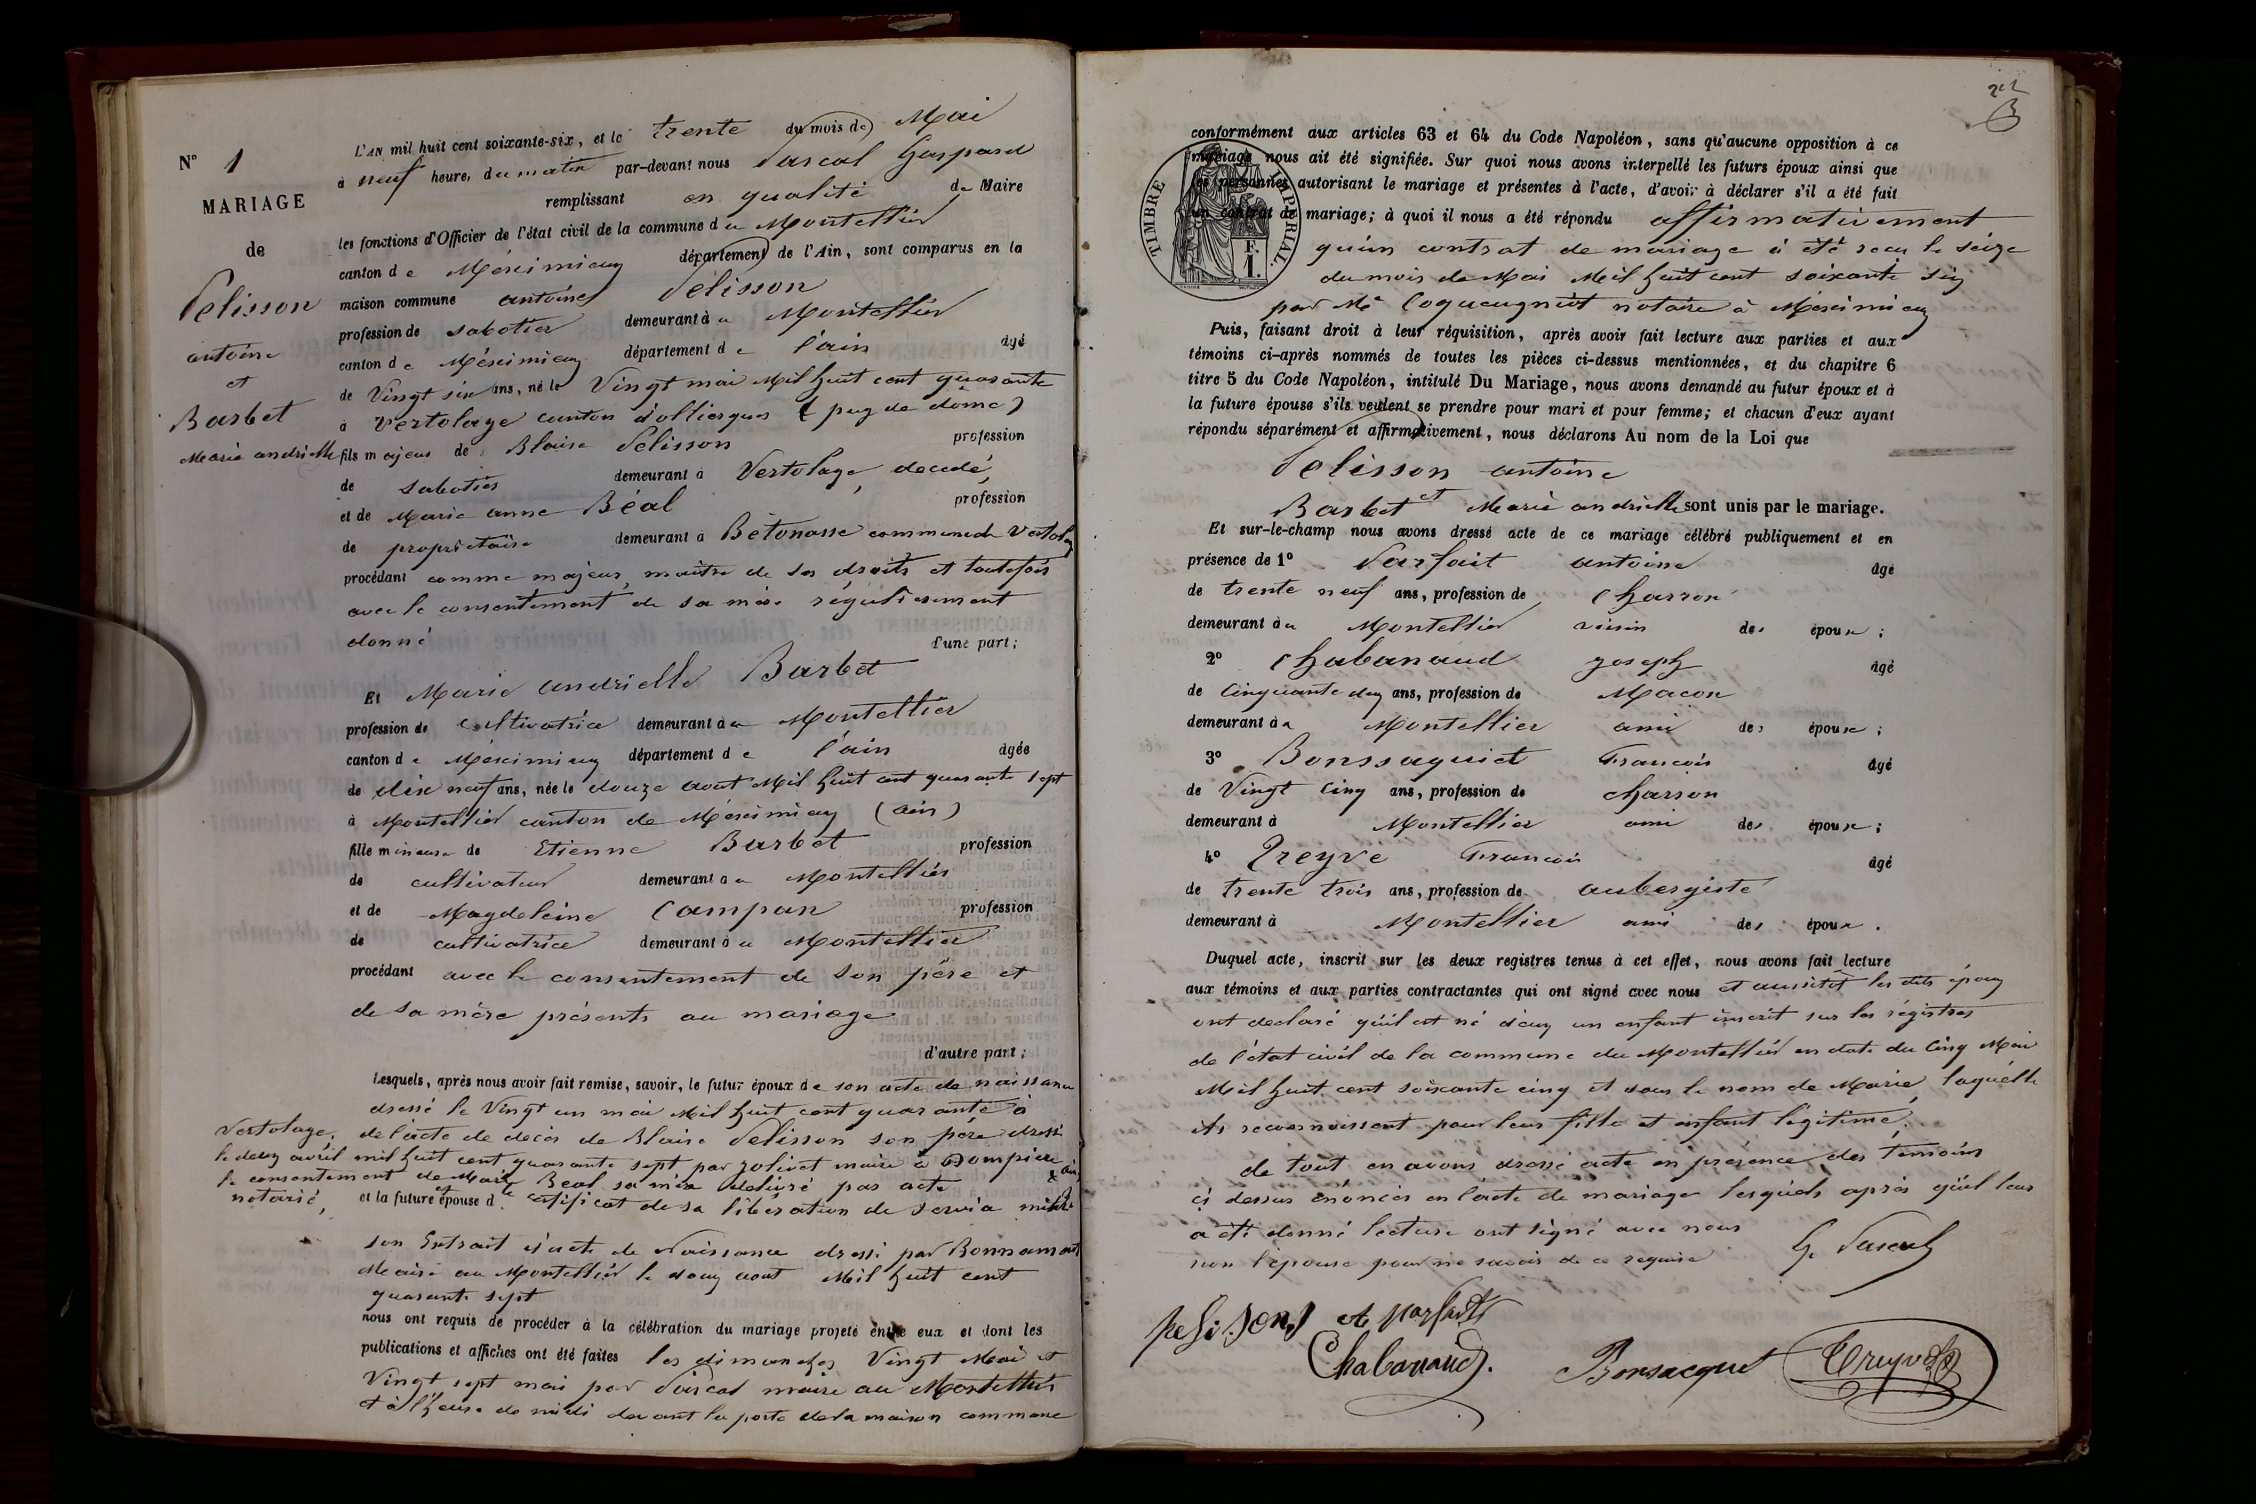 N° 1
MARIAGE
de
Pelisson
antoine
et
Barbet
Marie andrielle
L'AN mil huit cent soixante-six, et le trente du mois de Mai
à neuf heure, du matin par-devant nous Pascal Gaspard
remplissant en qualité de Maire
les fonctions d'Officier de l'état civil de la commune du Montellier
canton de Méximieux département de l'Ain, sont comparus en la
maison commune antoine Pélisson
profession de sabotier demeurant à u Montellier
canton de Méximieux département de l'ain âgé
de Vingt six ans, né le Vingt mai Mil huit cent quarante
à Vertolaye canton d'olliergues (puy de dome)
fils majeur de Blaise Pelisson profession
de sabotier demeurant à Vertolaye, decedé,
et de Marie anne Béal profession
de propriétaire demeurant à Bétonasse commune de Vertolay
procédant comme majeur, maître de ses droits et toutefois
avec le consentement de sa mère régulièrement
donné d'une part;
Et Marie andrielle Barbet
profession de Cultivatrice demeurant à u Montellier
canton de Méximieux département de l'ain âgée
de dix neuf ans, née le douze aout Mil huit cent quarante sept
à Montellier canton de Méximieux (ain)
fille mineure de Etienne Barbet profession
de cultivateur demeurant à u Montellier
et de Magdeleine Campan profession
de cultivatrice demeurant à u Montellier
procédant avec le consentement de son père et
de sa mère présents au mariage
d'autre part;
Lesquels, après nous avoir fait remise, savoir, le futur époux de son acte de naissance
dressé le Vingt un mai Mil huit cent quarante à
Vertolaye, de l'acte de décès de Blaise Pelisson son père dressé
le deux avril mil huit cent quarante sept par Jolivet maire à Dompierre
le consentement de Marie Beal sa mère délivré par acte
notarié, et la future épouse d et le certificat de sa libération de service
son Extrait d'acte de Naissance dressé par Bonnamour
Maire au Montellier le douze aout Mil huit cent
quarante sept
nous ont requis de procéder à la célébration du mariage projeté entre eux et dont les
publications et affiches ont été faites les dimanches Vingt Mai et
Vingt sept mai par Pascal maire au Montellier
et à l'heure de midi devant la porte de la maison commune
conformément aux articles 63 et 64 du Code Napoléon, sans qu'aucune opposition à ce
mariage nous ait été signifiée. Sur quoi nous avons interpellé les futurs époux ainsi que
les personnes autorisant le mariage et présentes à l'acte, d'avoir à déclarer s'il a été fait
un contrat de mariage; à quoi il nous a été répondu affirmativement
TIMBRE IMPÉRIAL.
F.
1.
qu'un contrat de mariage a été recu le seize
du mois de Mai Mil huit cent soixante six
par Me Coqueugniot notaire à Meximieux
Puis, faisant droit à leur réquisition, après avoir fait lecture aux parties et aux
témoins ci-après nommés de toutes les pièces ci-dessus mentionnées, et du chapitre 6
titre 5 du Code Napoléon, intitulé Du Mariage, nous avons demandé au futur époux et à
la future épouse s'ils veulent se prendre pour mari et pour femme; et chacun d'eux ayant
répondu séparément et affirmativement, nous déclarons Au nom de la Loi que
Pelisson antoine
et
Barbet Marie andrielle sont unis par le mariage.
Et sur-le-champ nous avons dressé acte de ce mariage célébré publiquement et en
présence de 1° Parfait antoine âgé
de trente neuf ans, profession de Charron
demeurant à u Montellier voisin des époux;
2° Chabanaud Joseph âgé
de Cinquante deux ans, profession de Macon
demeurant à u Montellier ami des époux;
3° Bonssaquiet Francois âgé
de Vingt Cinq ans, profession de charron
demeurant à Montellier ami des époux;
4° Treyve Francois âgé
de trente trois ans, profession de aubergiste
demeurant à Montellier ami des époux.
Duquel acte, inscrit sur les deux registres tenus à cet effet, nous avons fait lecture
aux témoins et aux parties contractantes qui ont signé avec nous et aussitôt les dits époux
ont déclaré qu'il est né d'eux un enfant inscrit sur les régistres
de l'état civil de la commune du Montellier en date du Cinq Mai
Mil huit cent soixante cinq et sous le nom de Marie, laquelle
ils reconnoissent pour leur fille et enfant légitime.
de tout en avons dressé acte en présence des témoins
ci dessus énoncés en l'acte de mariage lesquels après qu'il leur
a été donné lecture ont signé avec nous
non l'épouse pour ne savoir de ce requise
G. Pascal
peliSon
A parfait
Chabanaud.
Bonsacquet
Treyve